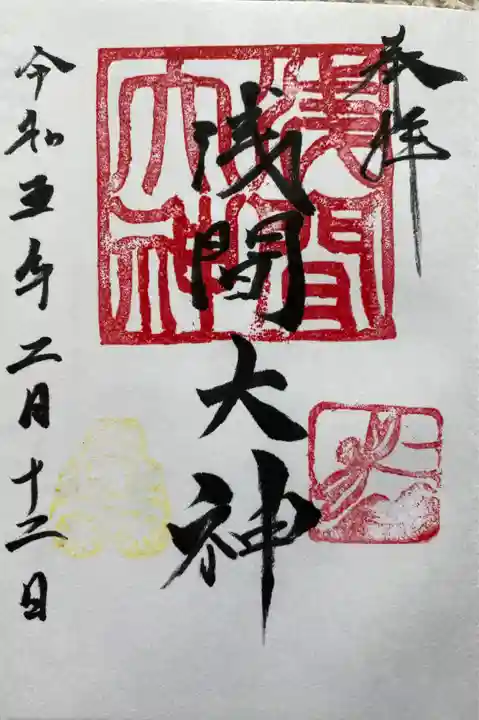 奉拝
浅間大神
淺間大神
令和五年二月十二日